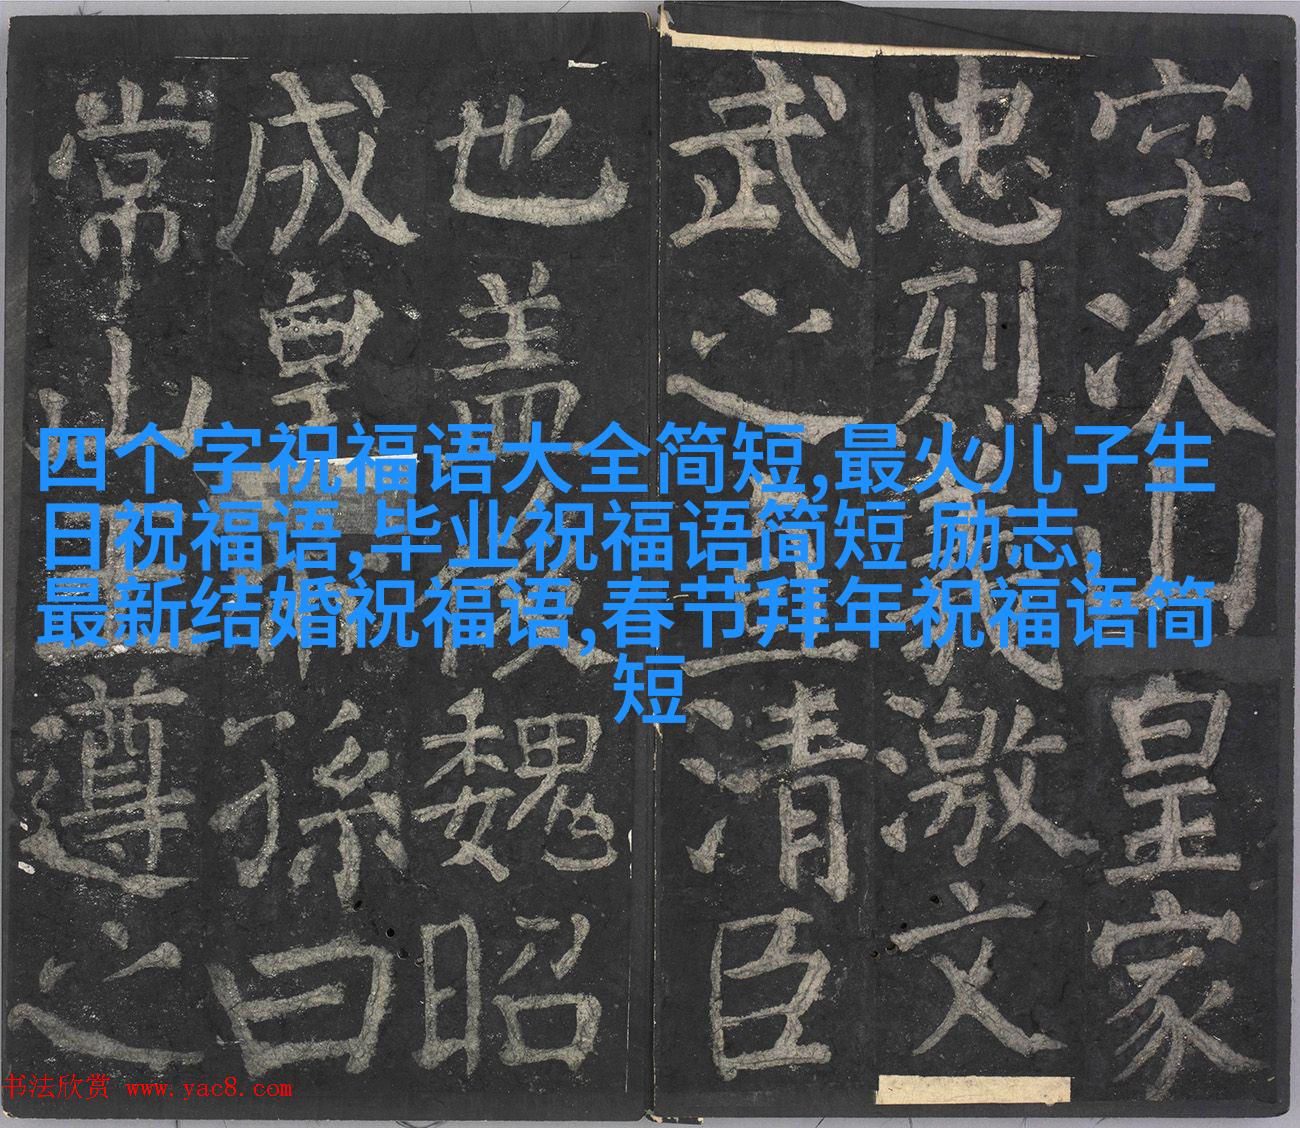 字次山皇家
忠烈義激文
武之直清臣
也盖後魏昭
成皇帝孫曰
常山王遵之
四个字祝福语大全简短,最火儿子生
日祝福语,毕业祝福语简短 励志,
最新结婚祝福语,春节拜年祝福语简
短
书法欣赏 www.yac8.com